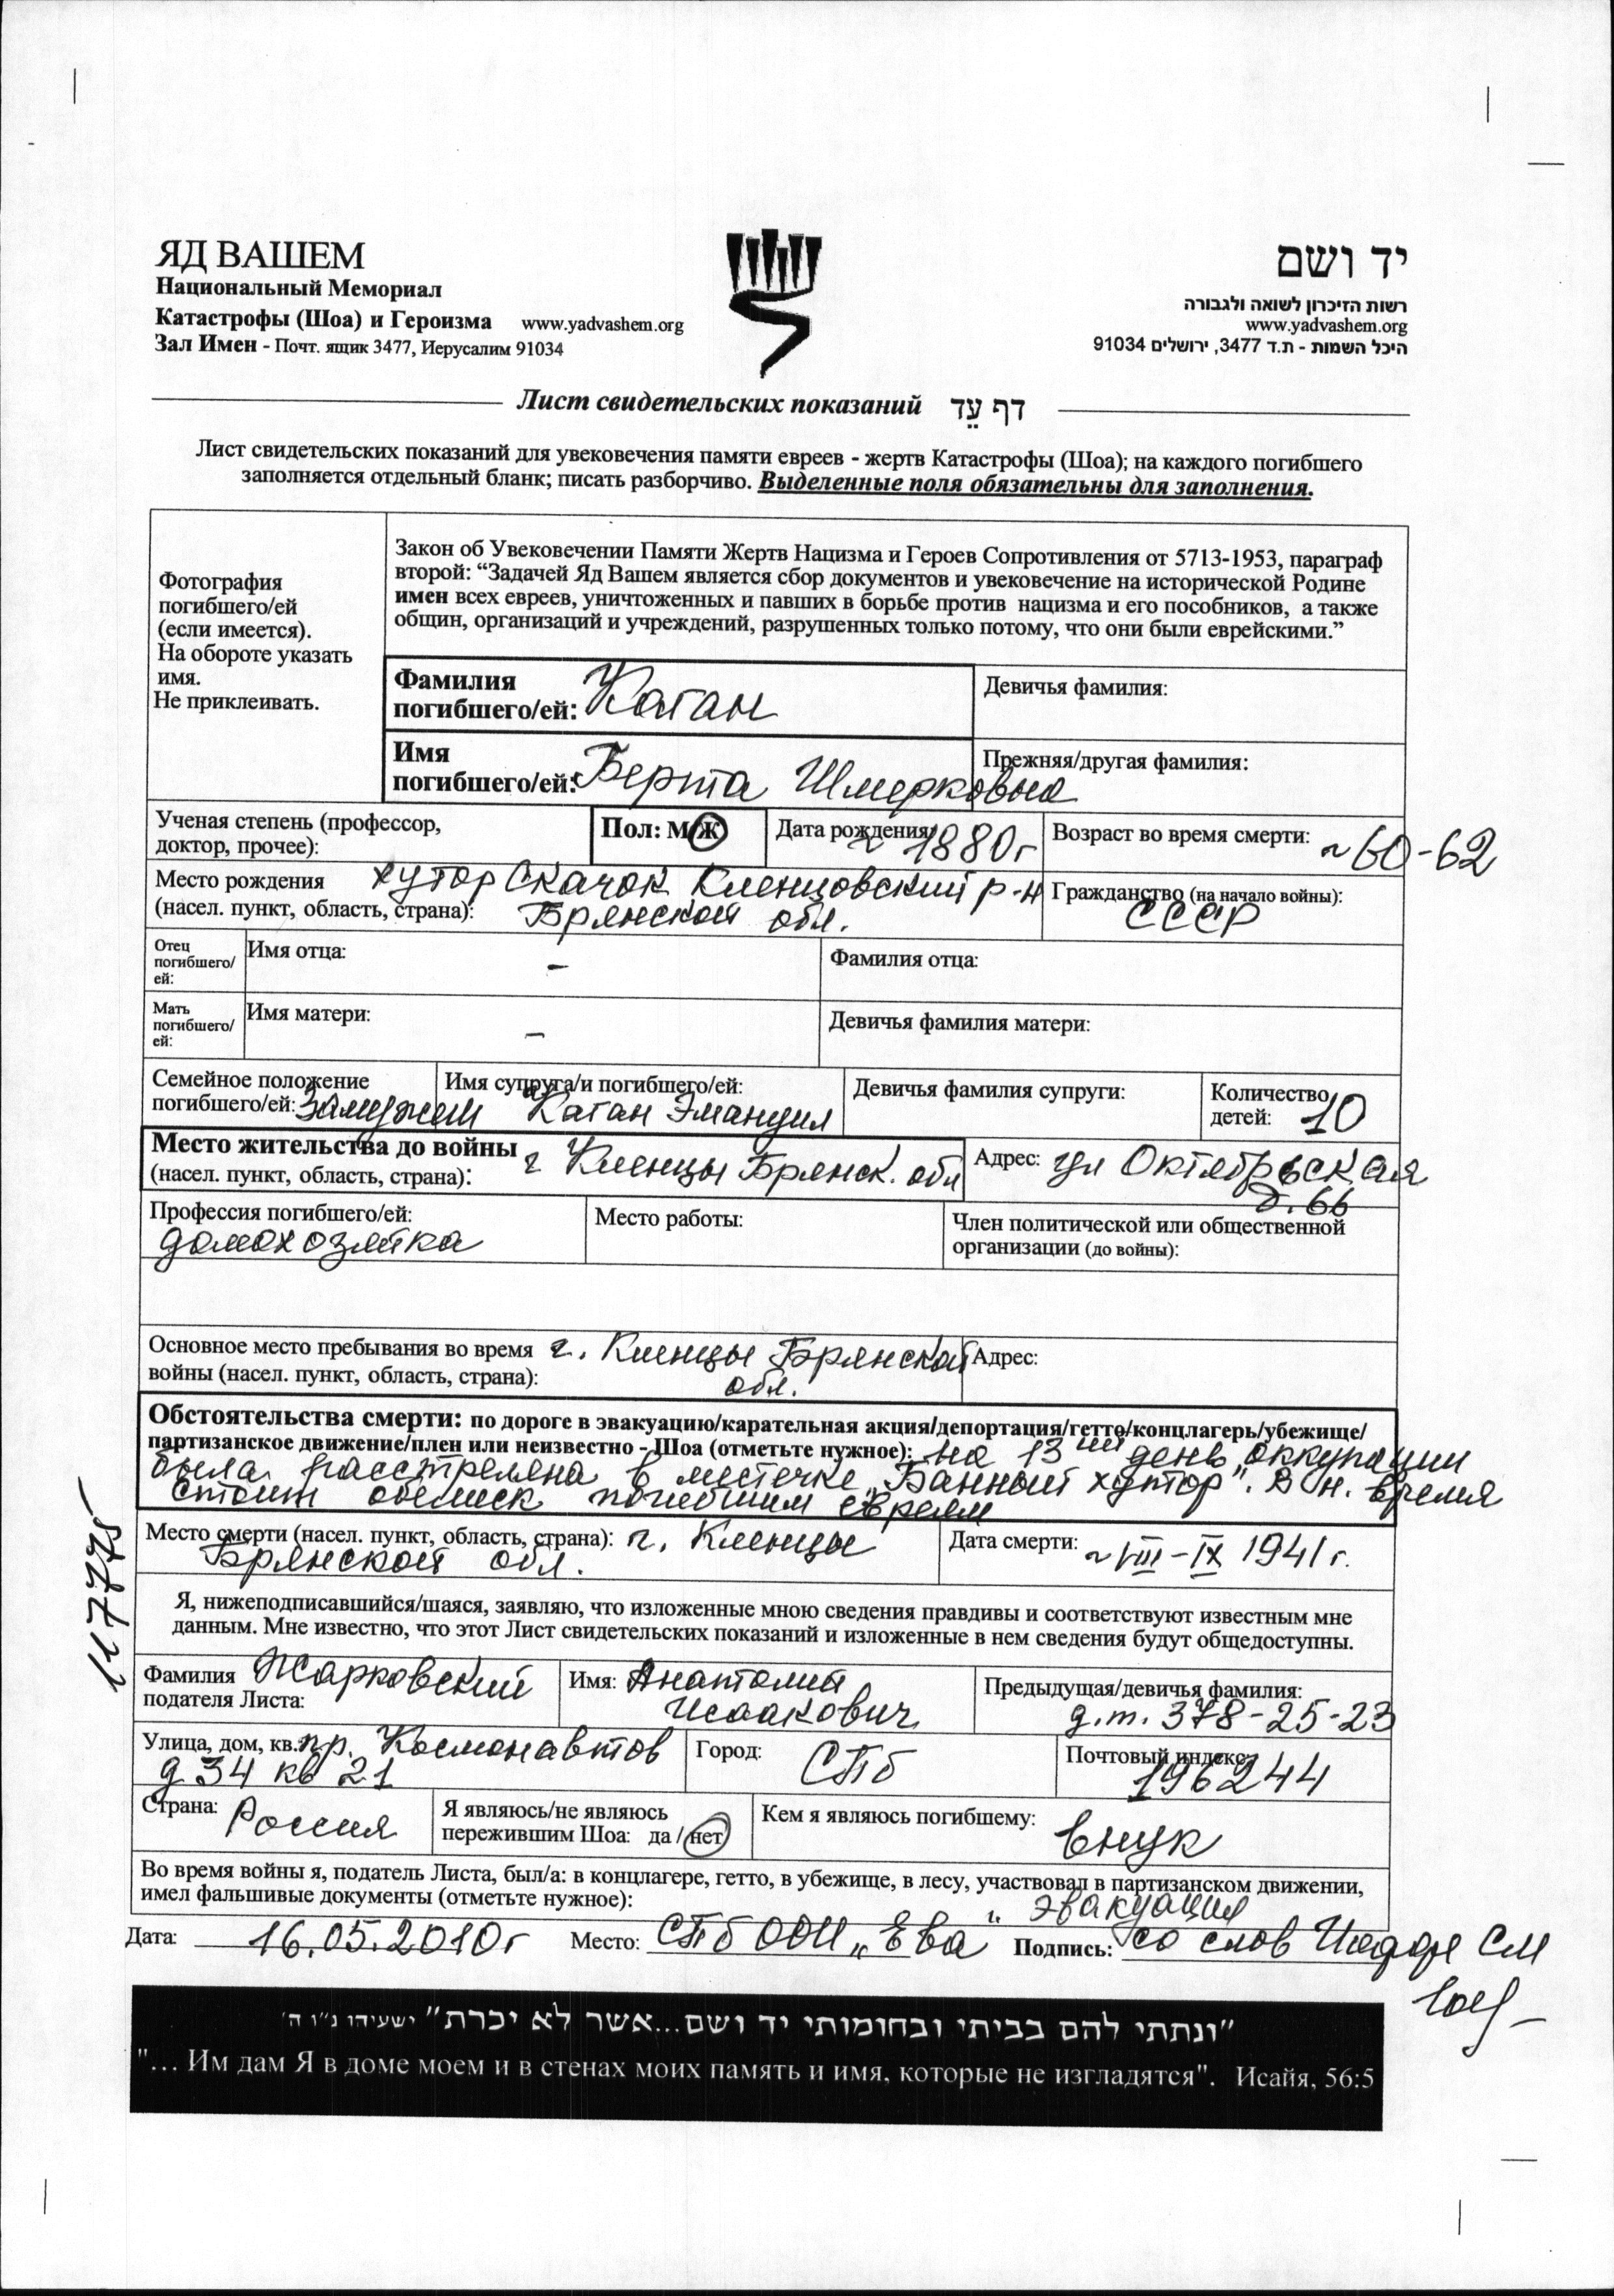 ЯД ВАШЕМ
Национальный Мемориал
Катастрофы (Шоа) и Героизма www.yadvashem.org
Зал Имен - Почт. ящик 3477, Иерусалим 91034
יד ושם
רשות הזיכרון לשואה ולגבורה
www.yadvashem.org
היכל השמות - ת.ד 3477, ירושלים 91034
Лист свидетельских показаний דף עֵד
Лист свидетельских показаний для увековечения памяти евреев - жертв Катастрофы (Шоа); на каждого погибшего
заполняется отдельный бланк; писать разборчиво. Выделенные поля обязательны для заполнения.
Фотография
погибшего/ей
(если имеется).
На обороте указать
имя.
Не приклеивать.
Закон об Увековечении Памяти Жертв Нацизма и Героев Сопротивления от 5713-1953, параграф
второй: “Задачей Яд Вашем является сбор документов и увековечение на исторической Родине
имен всех евреев, уничтоженных и павших в борьбе против нацизма и его пособников, а также
общин, организаций и учреждений, разрушенных только потому, что они были еврейскими.”
Фамилия
погибшего/ей: Каган
Девичья фамилия:
Имя
погибшего/ей: Берта Шмерковна
Прежняя/другая фамилия:
Ученая степень (профессор,
доктор, прочее):
Пол: М/Ж
Дата рождения: ~ 1880г
Возраст во время смерти: ~60-62
Место рождения хутор Скачок Клинцовский р-н
(насел. пункт, область, страна): Брянской обл.
Гражданство (на начало войны):
СССР
Отец
погибшего/
ей:
Имя отца: -
Фамилия отца:
Мать
погибшего/
ей:
Имя матери: -
Девичья фамилия матери:
Семейное положение
погибшего/ей: Замужем
Имя супруга/и погибшего/ей:
Каган Эмануил
Девичья фамилия супруги:
Количество
детей: 10
Место жительства до войны
(насел. пункт, область, страна): г Клинцы Брянск. обл
Адрес: ул Октябрьская
д. 66
Профессия погибшего/ей:
домохозяйка
Место работы:
Член политической или общественной
организации (до войны):
Основное место пребывания во время г. Клинцы Брянской
войны (насел. пункт, область, страна): обл.
Адрес:
Обстоятельства смерти: по дороге в эвакуацию/карательная акция/депортация/гетто/концлагерь/убежище/
партизанское движение/плен или неизвестно - Шоа (отметьте нужное): на 13ый день оккупации
была расстреляна в местечке „Банный хутор". В н. время
стоит обелиск погибшим евреям
Место смерти (насел. пункт, область, страна): г. Клинцы
Брянской обл.
Дата смерти: ~ VIII-IX 1941г.
117775
Я, нижеподписавшийся/шаяся, заявляю, что изложенные мною сведения правдивы и соответствуют известным мне
данным. Мне известно, что этот Лист свидетельских показаний и изложенные в нем сведения будут общедоступны.
Фамилия Жарковский
подателя Листа:
Имя: Анатолий
Исаакович
Предыдущая/девичья фамилия:
д.т. 378-25-23
Улица, дом, кв.: пр. Космонавтов
д 34 кв 21
Город: СПб
Почтовый индекс:
196244
Страна: Россия
Я являюсь/не являюсь
пережившим Шоа: да / нет
Кем я являюсь погибшему:
внук
Во время войны я, податель Листа, был/а: в концлагере, гетто, в убежище, в лесу, участвовал в партизанском движении,
имел фальшивые документы (отметьте нужное): эвакуация
Дата: 16.05.2010г Место: СПб ООИ „Ева" Подпись: со слов
"ונתתי להם בביתי ובחומותי יד ושם...אשר לא יכרת" ישעיהו נ"ו ה'
"... Им дам Я в доме моем и в стенах моих память и имя, которые не изгладятся". Исайя, 56:5